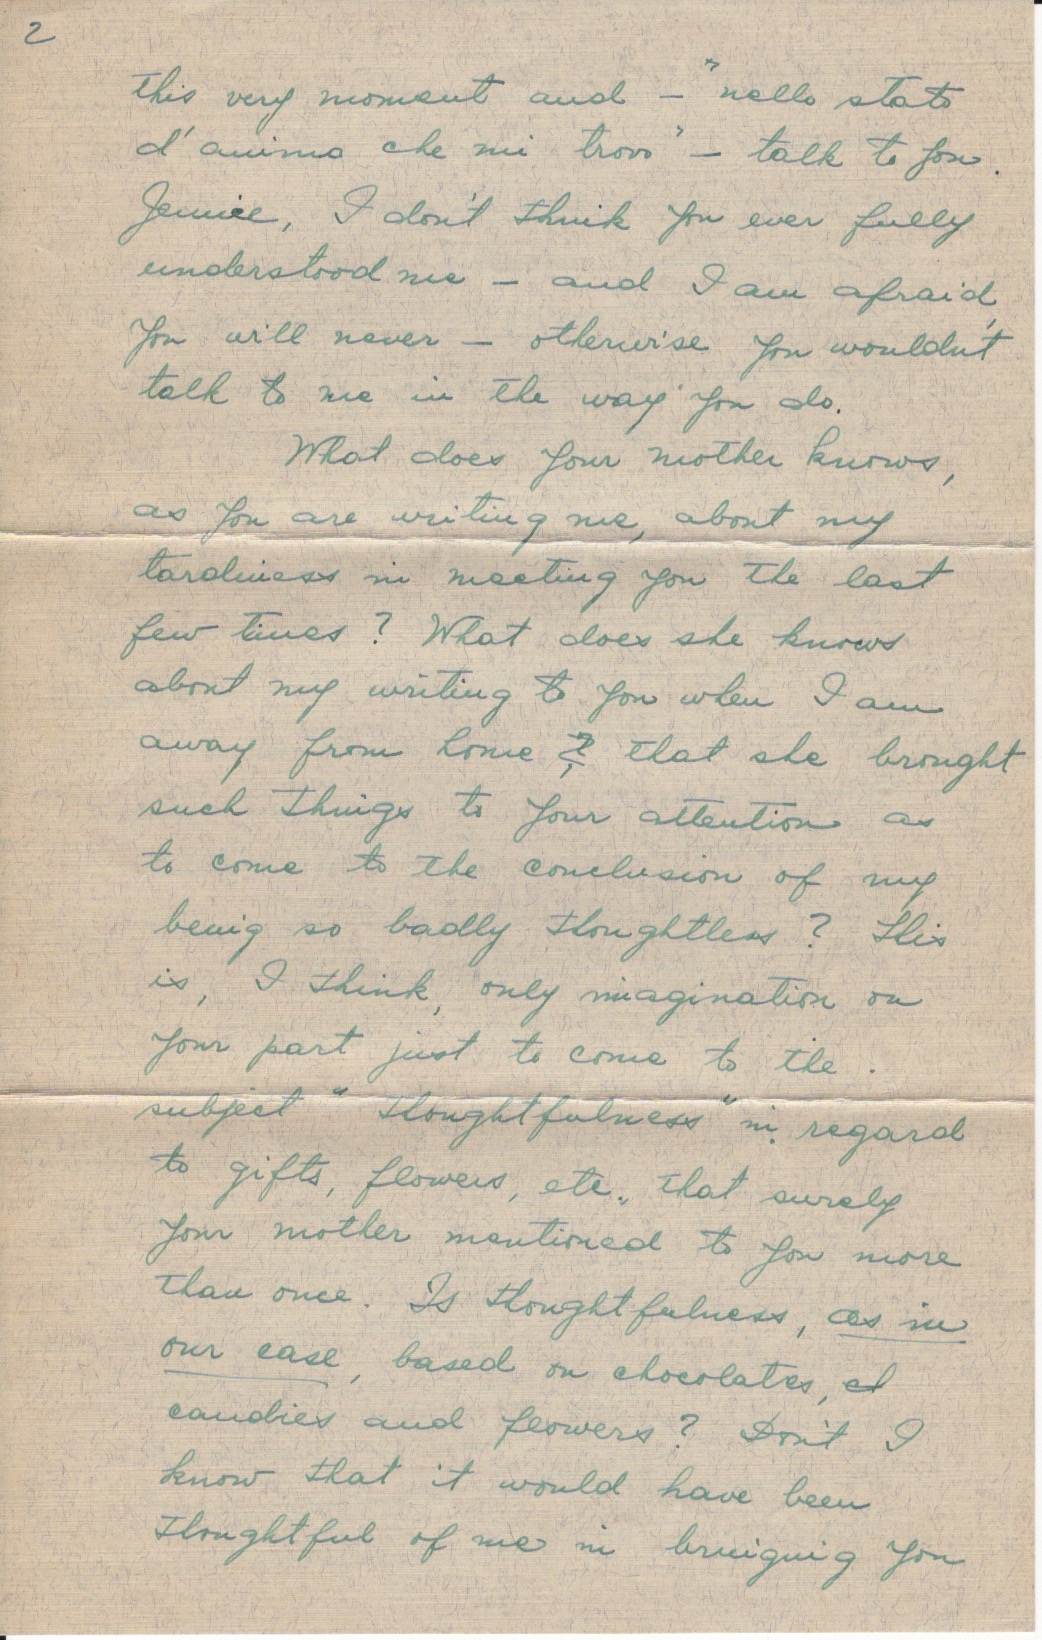 2
this very moment and — "nello stato
d'animo che mi trovo" — talk to you.
Jennie, I don't think you ever fully
understood me — and I am afraid,
you will never — otherwise you wouldn't
talk to me in the way you do.
What does your mother knows,
as you are writing me, about my
tardiness in meeting you the last
few times? What does she knows
about my writing to you when I am
away from home ? that she brought
such things to your attention as
to come to the conclusion of my
being so badly thoughtless? This
is, I think, only imagination on
your part just to come to the .
subject "thoughtfulness" in regard
to gifts, flowers, etc., that surely
your mother mentioned to you more
than once. Is thoughtfulness, as in
our case, based on chocolates,
candies and flowers? Don't I
know that it would have been
thoughtful of me in bringing you